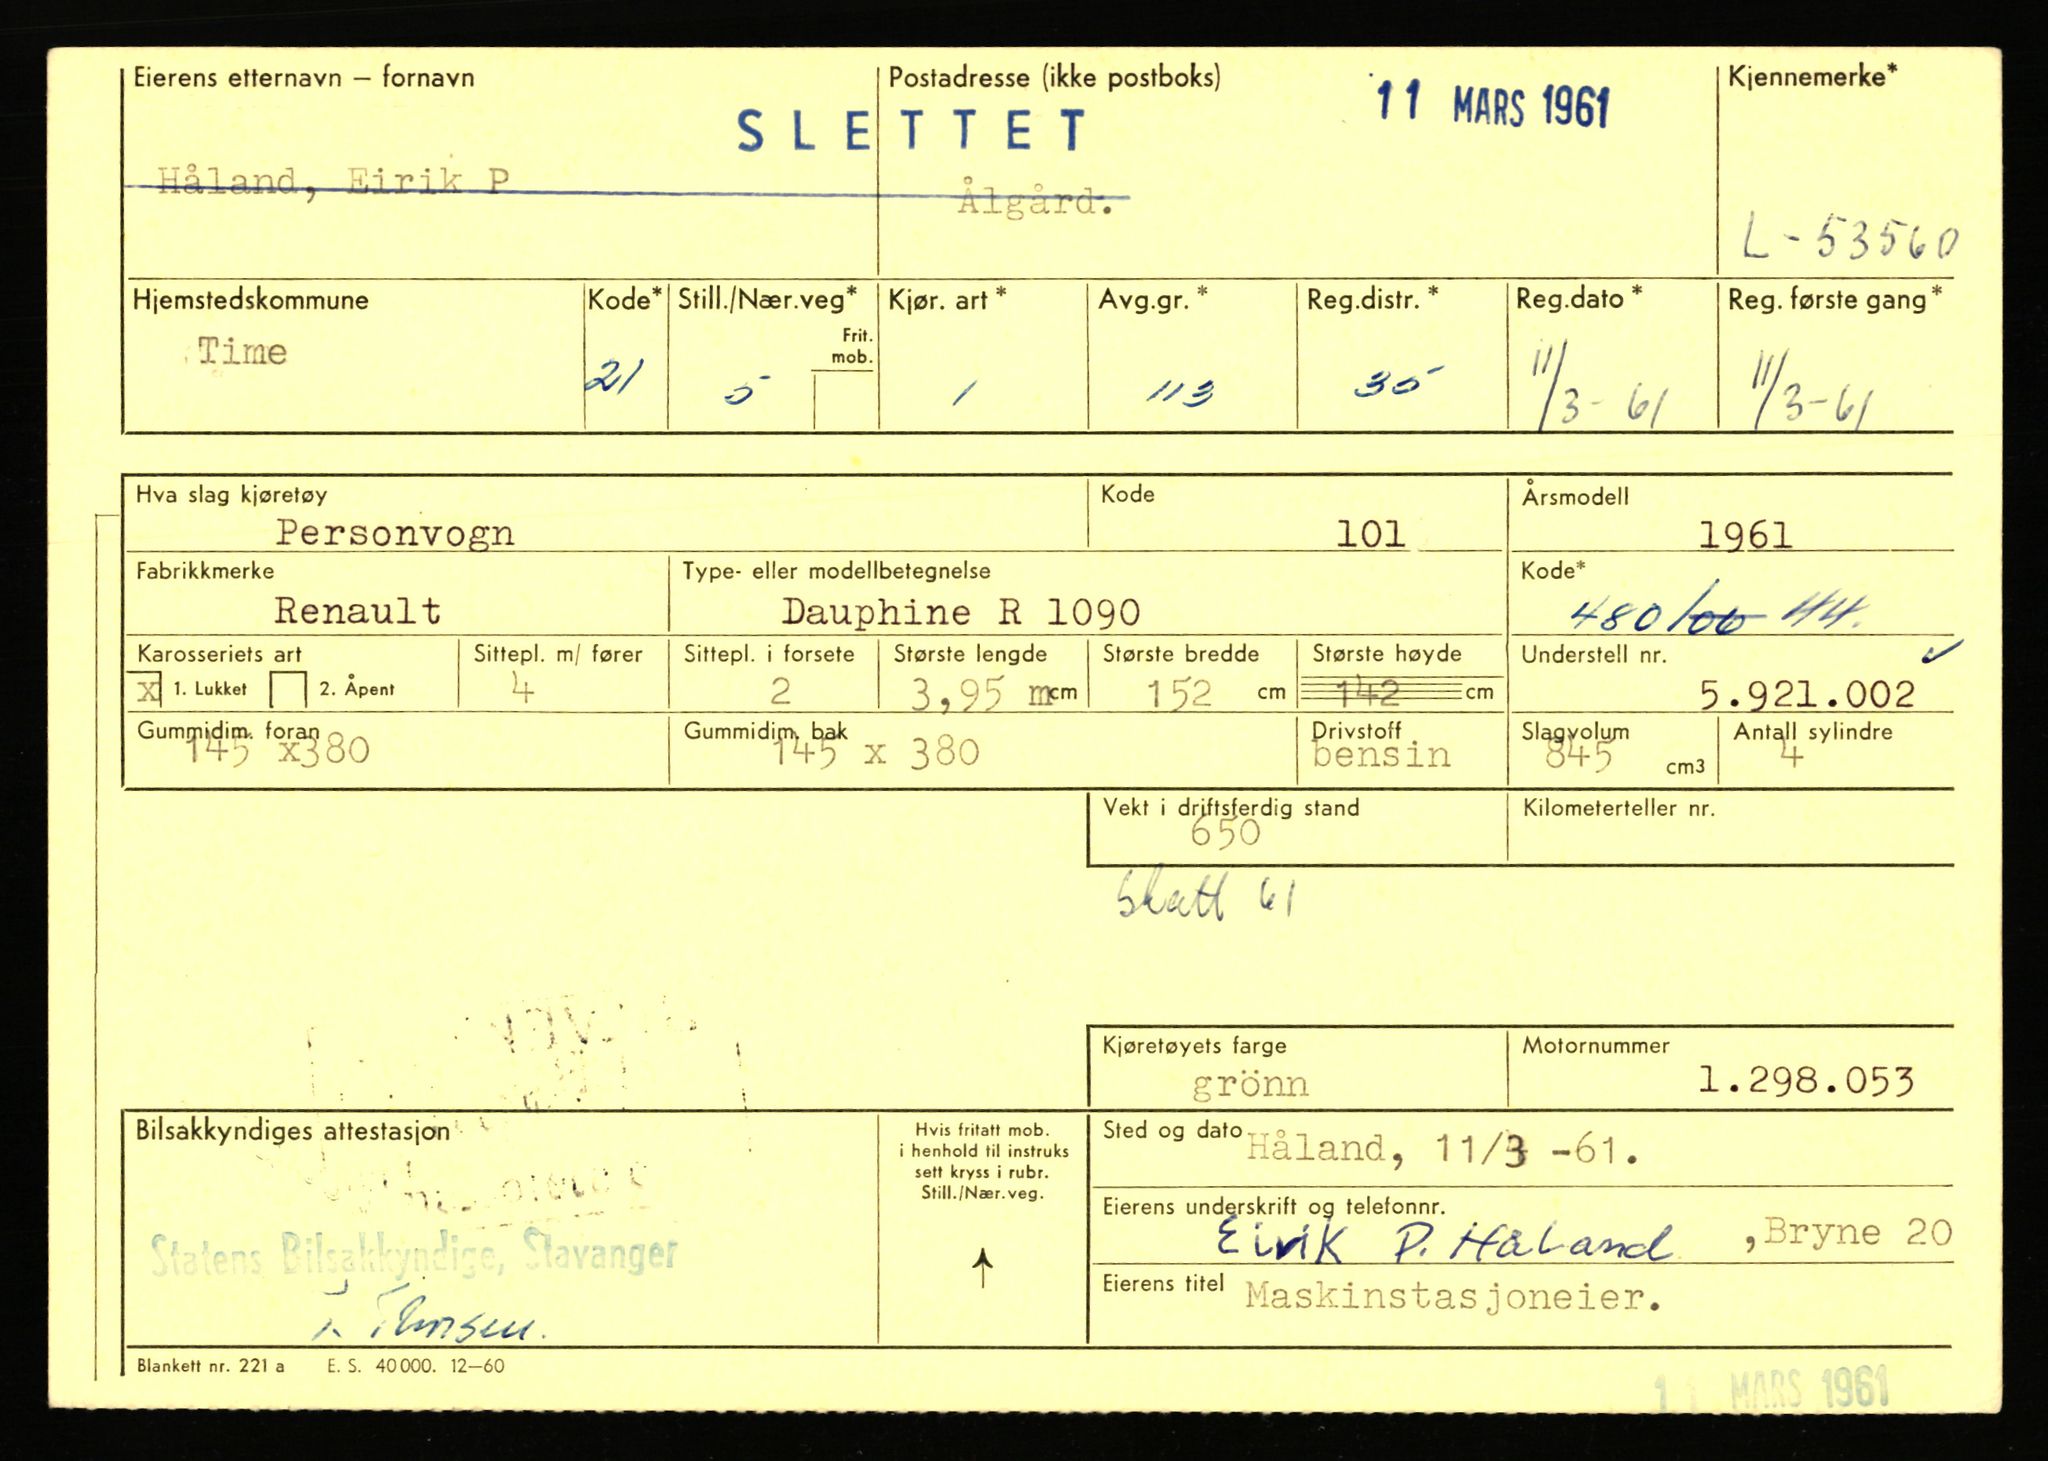 Eierens etternavn – fornavn
Postadresse (ikke postboks)
11 MARS 1961
Kjennemerke*
SLETTET
Håland, Eirik P
Ålgård.
L-53560
Hjemstedskommune
Kode*
Still./Nær.veg*
Kjør. art*
Avg.gr.*
Reg.distr.*
Reg.dato*
Reg. første gang*
Frit. mob.
Time
21
5
1
113
35
11/3-61
11/3-61
Hva slag kjøretøy
Kode
Årsmodell
Personvogn
101
1961
Fabrikkmerke
Type- eller modellbetegnelse
Kode*
Renault
Dauphine R 1090
480/00 44.
Karosseriets art
Sittepl. m/ fører
Sittepl. i forsete
Største lengde
Største bredde
Største høyde
Understell nr.
x 1. Lukket 2. Åpent
4
2
3,95 m cm
152 cm
142 cm
5.921.002
Gummidim. foran
Gummidim. bak
Drivstoff
Slagvolum
Antall sylindre
145 x380
145 x 380
bensin
845 cm3
4
Vekt i driftsferdig stand
Kilometerteller nr.
650
Skatt 61
Kjøretøyets farge
Motornummer
grönn
1.298.053
Bilsakkyndiges attestasjon
Hvis fritatt mob.
i henhold til instruks
sett kryss i rubr.
Still./Nær.veg.
Sted og dato
Håland, 11/3 -61.
Eierens underskrift og telefonnr.
Eirik P. Håland ,Bryne 20
Statens Bilsakkyndige, Stavanger
Eierens titel
Maskinstasjoneier.
Blankett nr. 221 a E. S. 40 000. 12–60
11 MARS 1961